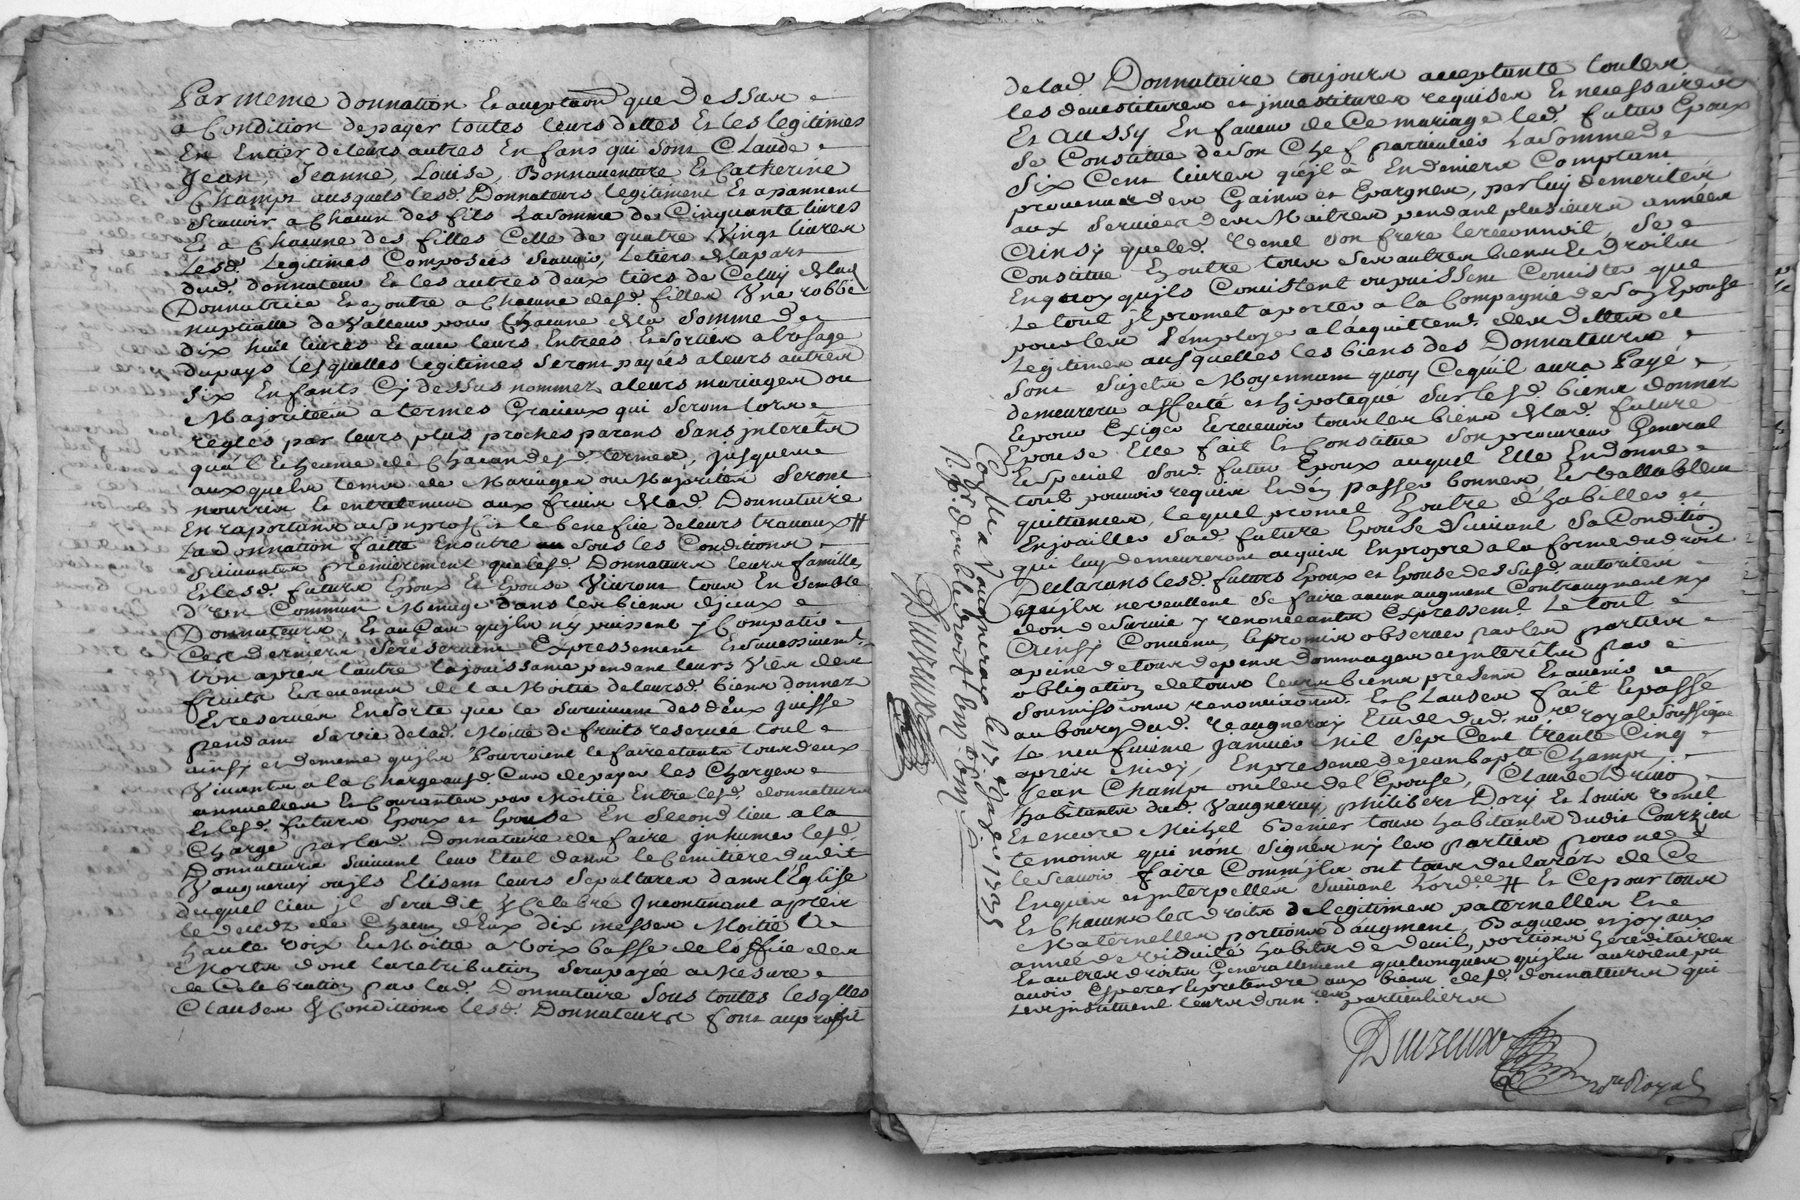 Par meme donnation Et acceptaon que dessus
a Condition de payer toutes leurs dettes Et les legitimes
En Entier de leurs autres Enfans qui sont Claude
Jean Jeanne, Louise, Bonnaventure Et Catherine
Champt ausquels lesd. Donnateurs legitiment Et apannent
Scavoir a Chacun des fils la somme de Cinquante livres
Et a Chacune des filles Celle de quatre Vingt livres
Lesd. Legitimes Composées Scavoir, Le tiers de la part
dud. donnateur Et les autres deux tiers de Celuy de lad.
Donnatrice Et en outre a Chacune desd. filles Une robbe
nuptialle de Valleur pour Chacune de la Somme de
dix huit livres Et avec leurs Entrées Et sorties a l'usage
du pays lesquelles legitimes Seront payées a leurs autres
Six Enfants Cy dessus nommez a leurs mariages ou
Majorités a termes Gracieux qui Seront lors
regles par leurs plus proches parens Sans interets
qua l'Echeance de Chacun desd. termes, jusques
auxquels tems de Mariages ou Majorités Seront
nourris Et entretenus aux frais de lad. Donnataire
En raportant a Son profit le benefice de leurs travaux #
La donnation faitte En outre sous les Conditions
Suivantes premierement que lesd. Donnateurs leurs famille
Et lesd. futurs Epoux Et Epouse Vivront tous Ensemble
d'un Commun Menage dans les biens d'iceux
Donnateurs, Et au Cas qu'ils n'y pussent y Compatir
Ces derniers Se reservent Expressement Et Successivemt.
l'un apres l'autre la jouissance pendant leurs Vies des
fruits Et revenus de la Moitié de leursd. biens donnez
Et reservés En sorte que le Survivant des deux jouisse
pendant Sa vie de lad. Moitié de fruits reservée tout
ainsy et de meme qu'ils Pourroient le faire etants tous deux
Vivants a la Charge aud. Cas de payer les Charges
annuelles Et Courantes par Moitié Entre lesd. donnateurs
Et lesd. futurs Epoux et Epouse En Second lieu a la
Charge par lad. Donnataire de faire Inhumer lesd.
Donnateurs Suivant leur Etat dans le Cemitiere dudit
Vaugneray ou ils Elisent leurs Sepultures dans l'Eglise
duquel lieu il Sera dit & Celebré Incontinent apres
le decez de Chacun d'Eux dix messes Moitié a
haute voix Et Moitié a Voix basse de l'office des
Morts dont la retribution Sera payée a Mesure
de Celebration par lad. Donnataire Sous toutes lesqlles
Clauses & Conditions lesd. Donnateurs font au profit
de lad. Donnataire toujours acceptante toutes
les devestitures et investitures requises Et necessaires
Et Aussy En faveur de Ce mariage led. futur Epoux
Se Constitue de Son Chef particulier La Somme de
Six Cent livres qu'il a En deniers Comptans
provenus des Gains et Epargnes, par luy de merités
aux Services des Maitres pendant plusieurs années
Ainsy que led. Venet Son frere le reconnoit, Se
Constitue En outre tous Ses autres biens Et Droits
En quoy qu'ils Consistent ou puissent Consister que
Le tout il promet aporter a la Compagnie de Sad. Epouse
pour les Employer a l'acquittemt. des dettes et
Legitimes ausquelles les biens des Donnateurs
Sont Sujets Moyennant quoy Ce quil aura Payé
demeurera affecté et hipotequé Sur lesd. biens donnez
Et pour Exiger Et recevoir tous les biens de lad. future
Epouse Elle fait Et Constitue Son procureur General
Et Special Sond. futur Epoux auquel Elle En donne
tout pouvoir requis Et d'en passer bonnes Et Vallables
quittances, lequel promet En outre d'habiller et
Enjoailler Sad. future Epouse Suivant Sa Condition
qui luy demeureront acquis En propre a la forme du droit
Declarants lesd. futurs Epoux et Epouse dessusd. autorités
qu'ils ne veullent Se faire aucun augment Contraugment ny
don de Survie y renonceants Expressemt. Le tout
Ainsy Convenu Et promis observer par les parties
a peine de tous depens dommages et interets par
obligation de tous leurs biens presens Et avenir
Soumissions renonciaons. Et Clauses fait Et passé
au bourg dud. Vaugneray Etude dud. nore royal Soussigné
Le neufvieme Janvier Mil Sept Cent trente Cinq
apres Midy, En presence de jean bapte. Champt,
Jean Champt oncles de l'Epouse, Claude
habitants dud. Vaugneray, philibert Dory Et Louis Venet
Et encore Michel Benier tous habitants dudit Courzieu
temoins qui n'ont Signés ny les parties pour ne
le Scavoir faire Comm'ils ont tous declarés de Ce
Enquis et interpellés Suivant l'ordce # Et Ce pour tous
Et Chacuns les droits de legitimes paternelles Et
Maternelles portions d'augment, Bagues et joyaux
année de viduité habits de deuil, portions hereditaires
Et autres droits Generallement quelconques qu'ils auroient pu
avoir Esperer Et pretendre aux biens desd. donnateurs qui
Les instituent leurs donn.res particuliers
Duvzeux
nore Royal
Conllé a Vaugneray le 17e Janer 1735